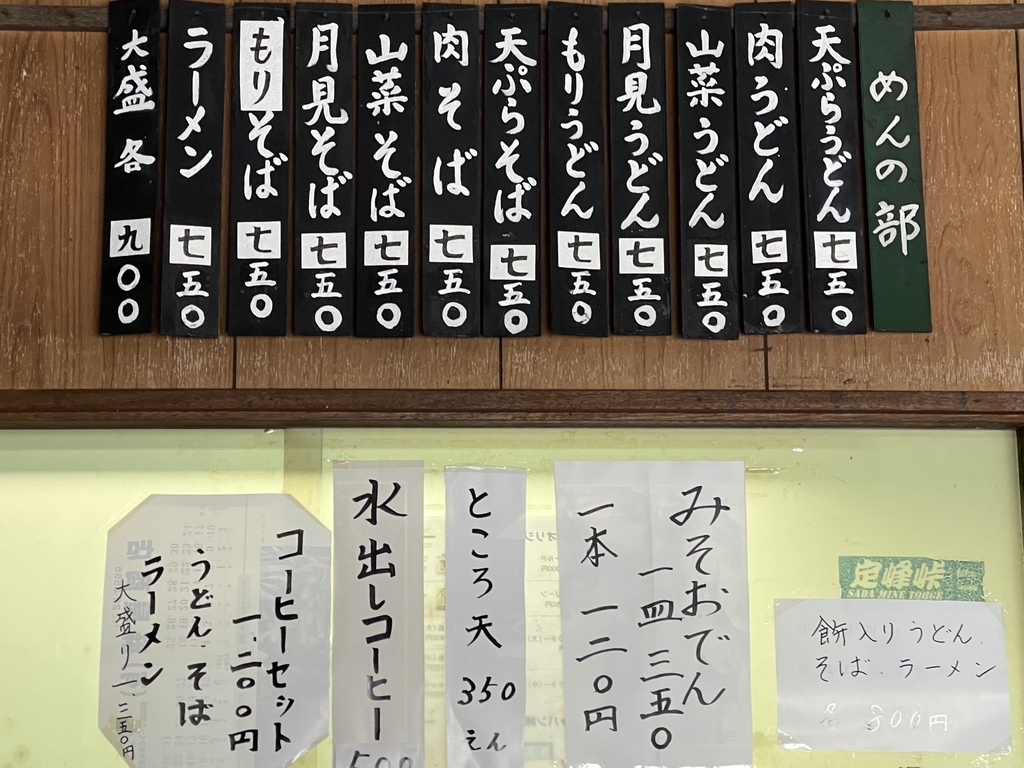 めんの部
天ぷらうどん 七五〇
肉うどん 七五〇
山菜うどん 七五〇
月見うどん 七五〇
もりうどん 七五〇
天ぷらそば 七五〇
肉そば 七五〇
山菜そば 七五〇
月見そば 七五〇
もりそば 七五〇
ラーメン 七五〇
大盛各 九〇〇
定峰峠
SADAMINE TOUGE
餅入りうどん.
そば.ラーメン
各 800円
みそおでん
一皿三五〇
一本 一二〇円
ところ天 350えん
水出しコーヒー 500
コーヒーセット
一.二〇〇円
うどん.そば
ラーメン
大盛り一.三五〇円